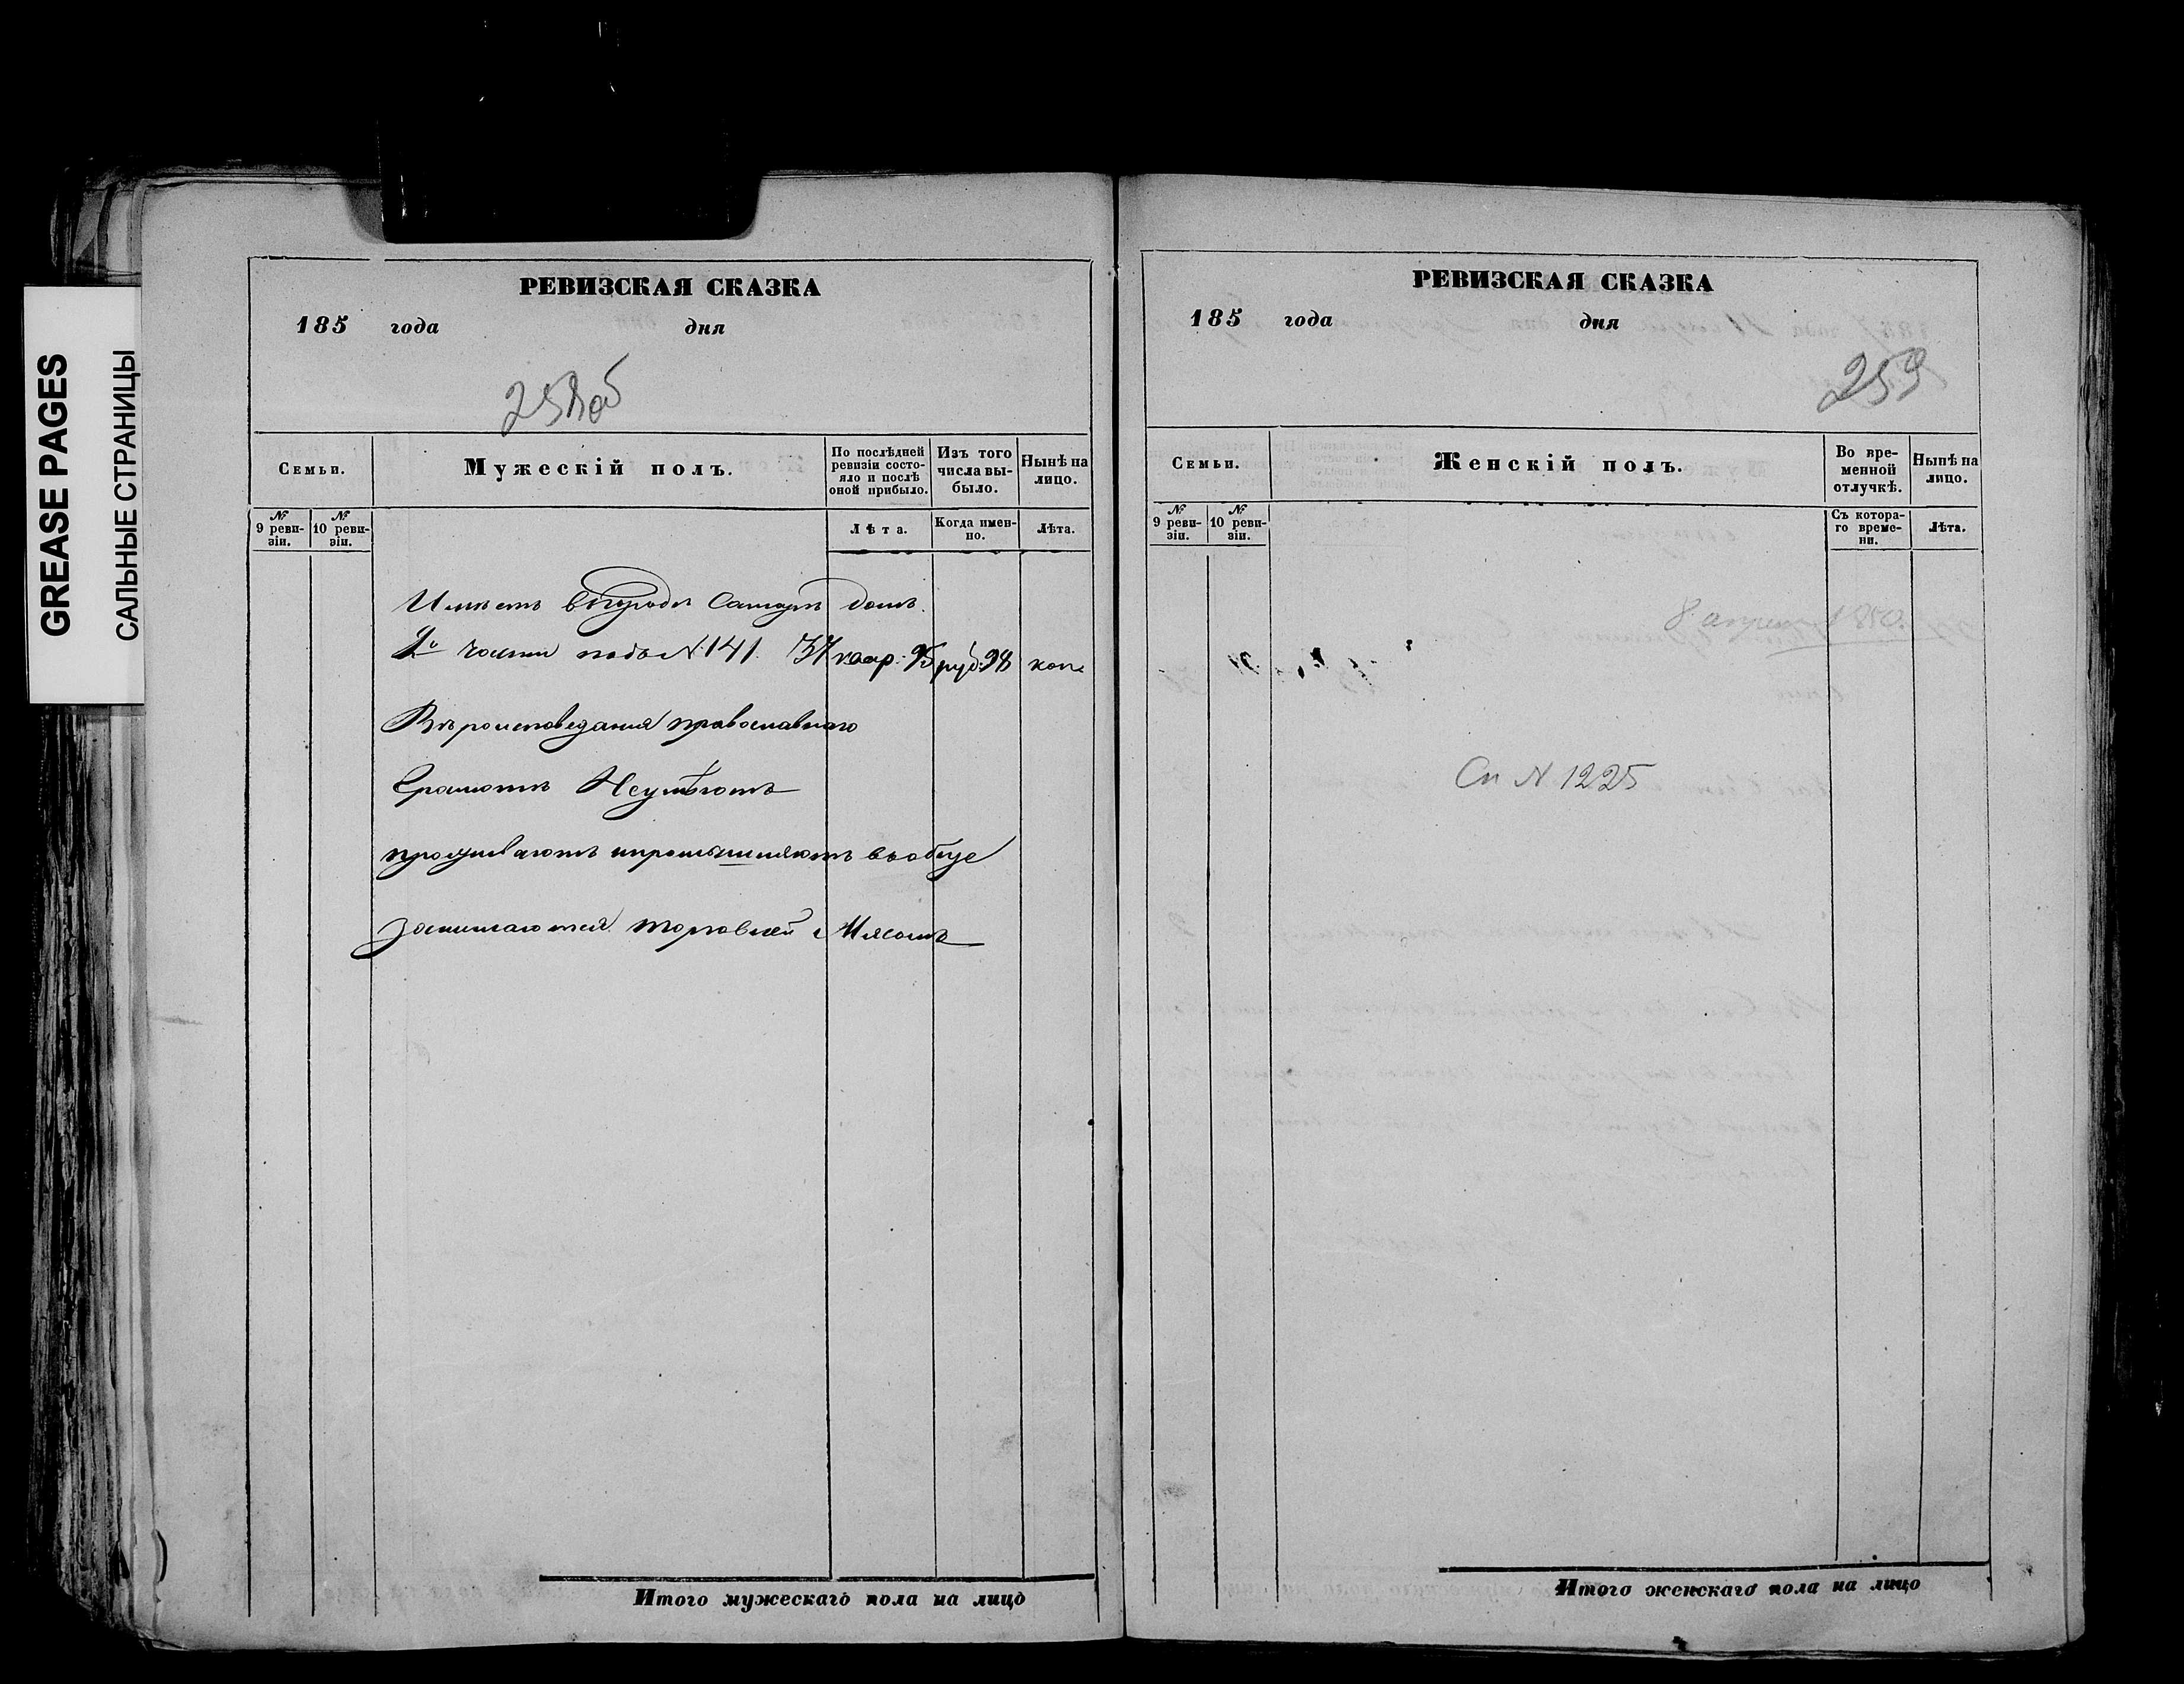 GREASE PAGES
САЛЬНЫЕ СТРАНИЦЫ
РЕВИЗСКАЯ СКАЗКА
185 года дня
258об
Семьи.
Мужескій полъ.
По послѣдней ревизіи состо-
яло и послѣ
оной прибыло.
Изъ того
числа вы-
было.
Нынѣ на
лицо.
№
9 реви-
зіи.
№
10 реви-
зіи.
Лѣта.
Когда имен-
но.
Лѣта.
Имѣетъ въ городе домъ.
2й части подъ №141. руб: 98 коп
Вѣроисповедания православнаго
Грамотѣ Неумѣютъ
проживаютъ вообще
занимаются торговлей Мясомъ
Итого мужескаго пола на лицо
РЕВИЗСКАЯ СКАЗКА
185 года дня
259
Семьи.
Женскій полъ.
Во вре-
менной
отлучкѣ.
Нынѣ на
лицо.
№
9 реви-
зіи.
№
10 реви-
зіи.
Съ котора-
го време-
ни.
Лѣта.
См N 1225
Итого женскаго пола на лицо